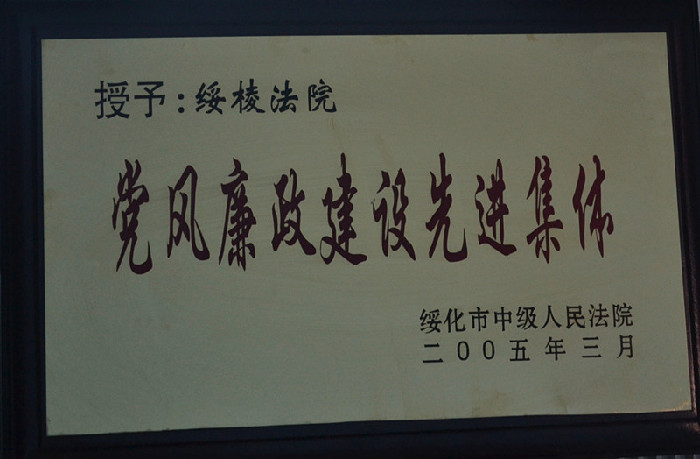 授予:绥棱法院
党风廉政建设先进集体
绥化市中级人民法院
二00五年三月